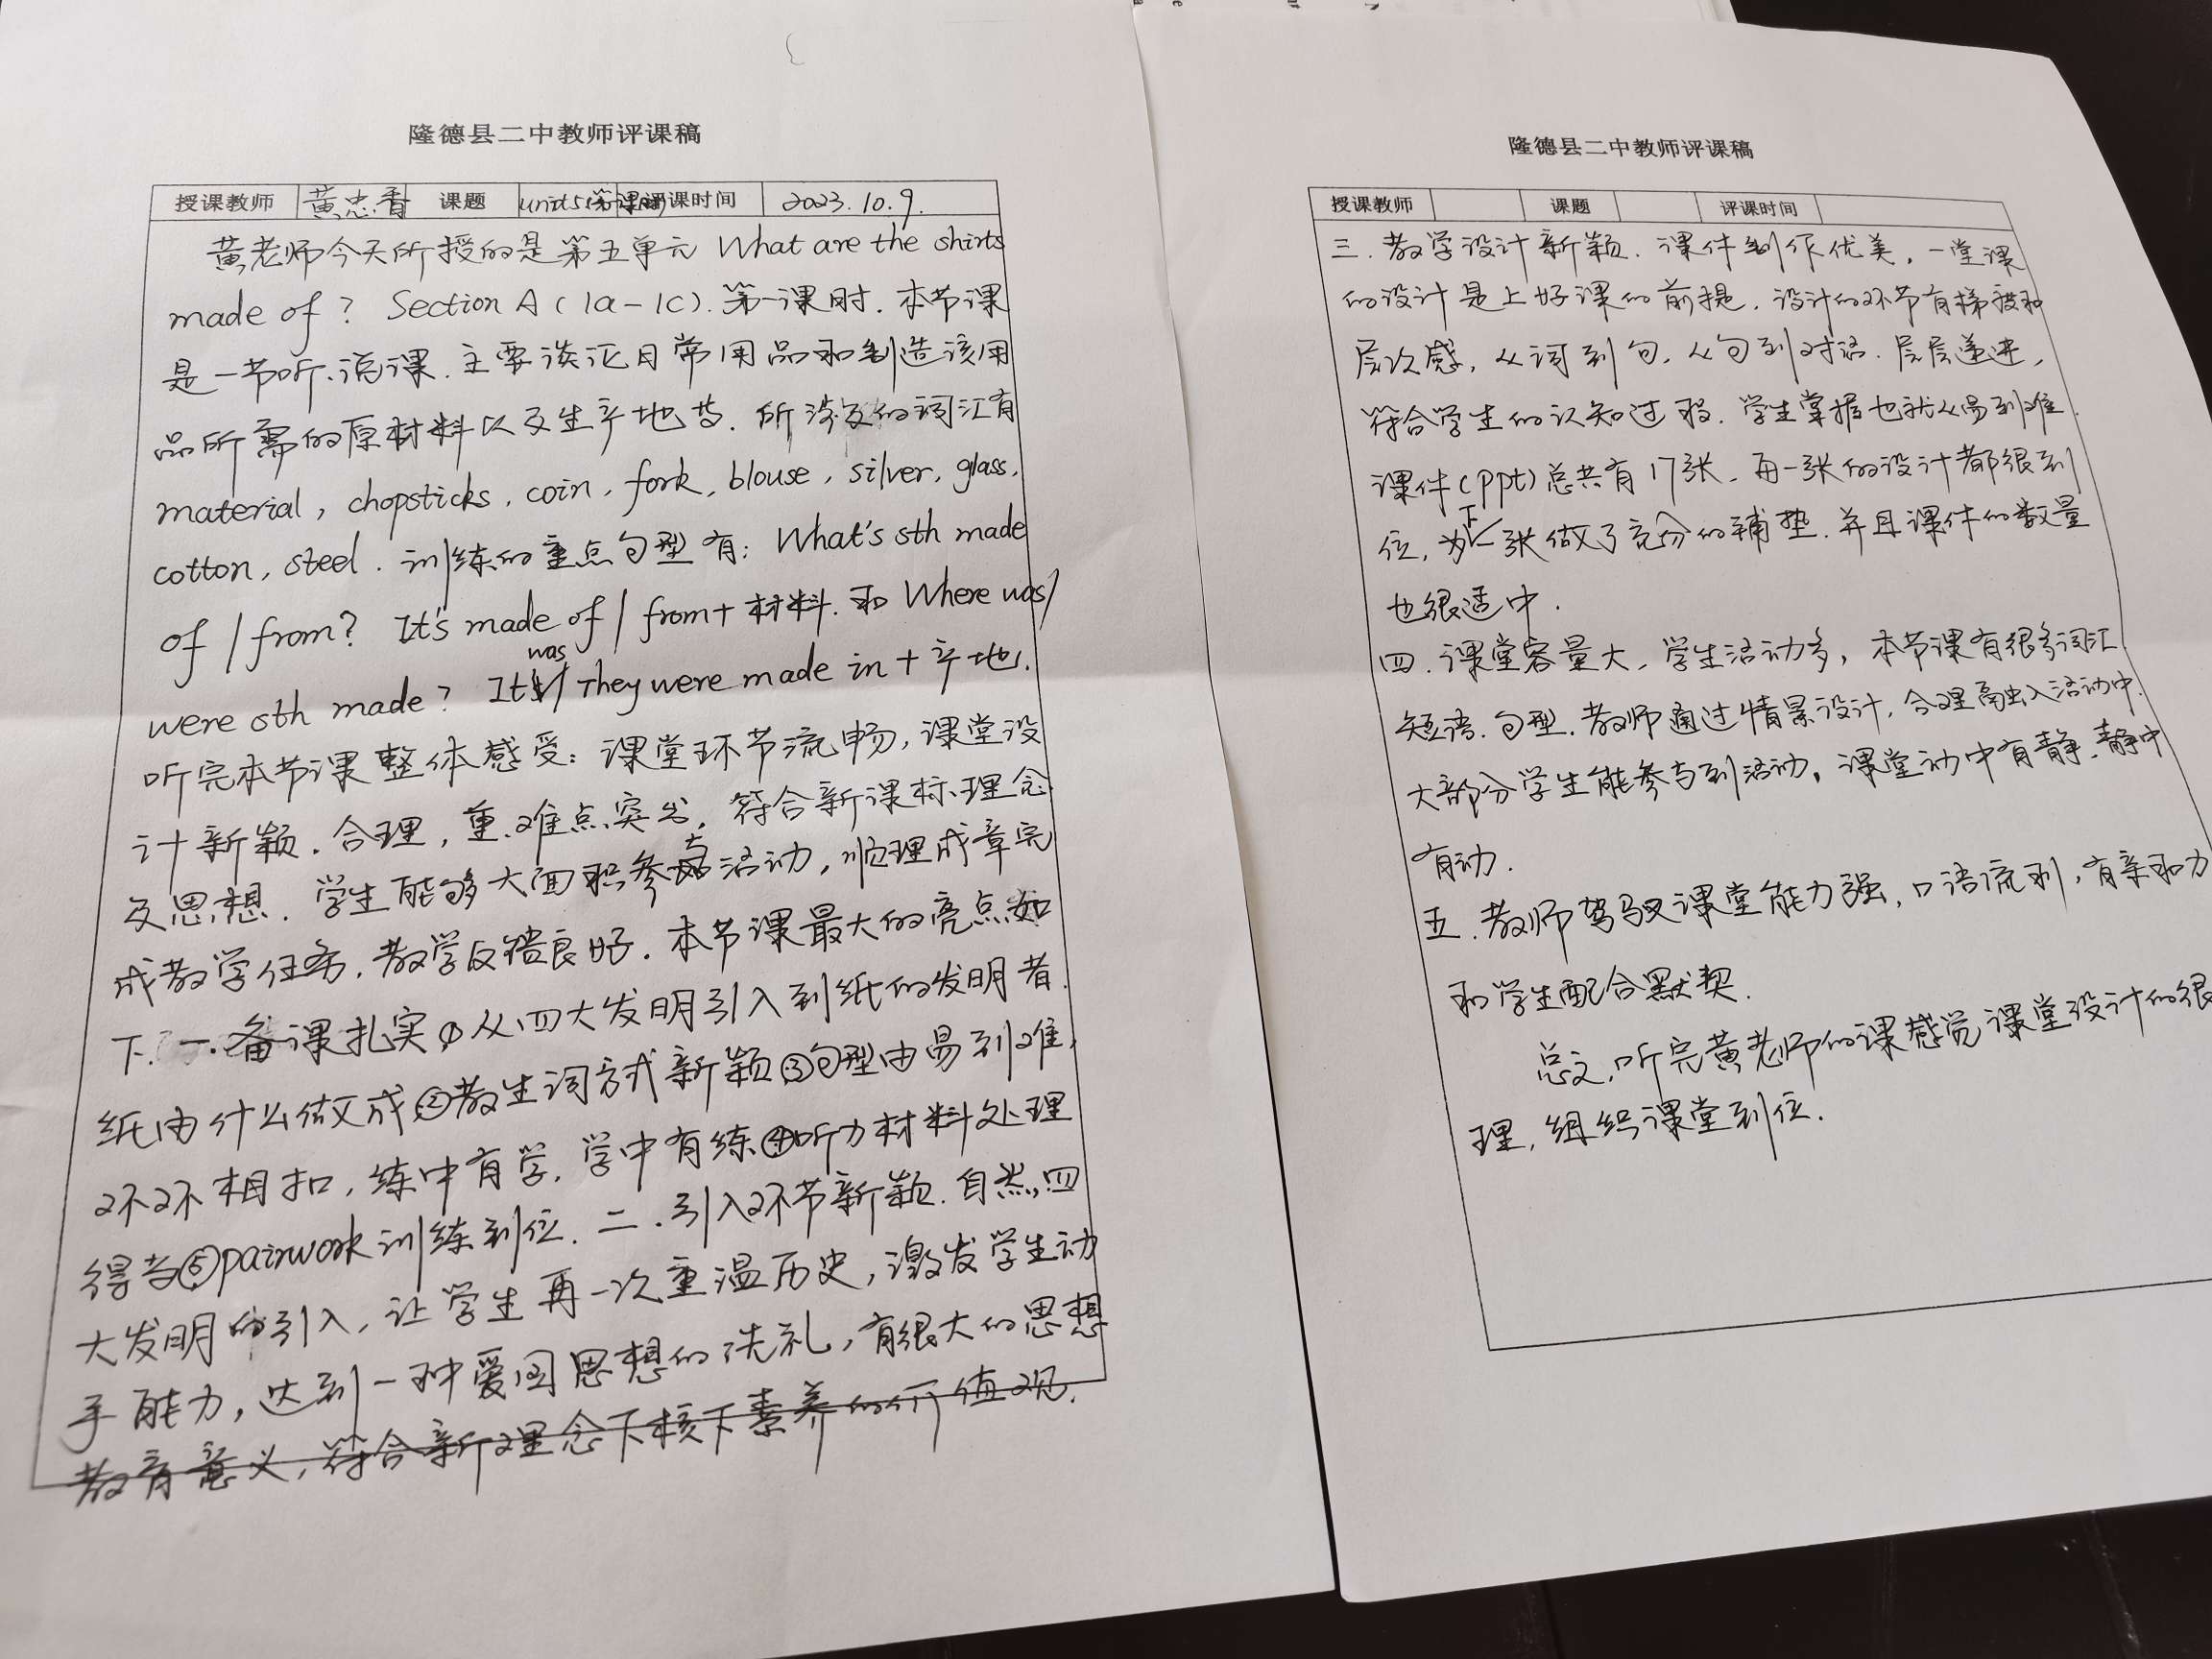 隆德县二中教师评课稿
授课教师 黄忠香 课题 unit5(第一课时) 评课时间 2023.10.9.
黄老师今天所授的是第五单元 What are the shirts
made of? Section A (1a-1c).第一课时.本节课
是一节听、说课.主要谈论日常用品和制造该用
品所需的原材料以及生产地点.所涉及的词汇有
material, chopsticks, coin, fork, blouse, silver, glass,
cotton, steel. 训练的重点句型有: What's sth made
of / from? It's made of / from+材料. 和 Where was/
were sth made? It was/ They were made in + 产地.
听完本节课整体感受: 课堂环节流畅,课堂设
计新颖.合理,重.难点突出,符合新课标理念
及思想.学生能够大面积参与活动,顺理成章完
成教学任务,教学反馈良好.本节课最大的亮点如
下.一.备课扎实①从四大发明引入到纸的发明者.
纸由什么做成②教生词方式新颖③句型由易到难,
环环相扣,练中有学,学中有练④听力材料处理
得当⑤pairwork训练到位.二.引入环节新颖.自然,四
大发明的引入,让学生再一次重温历史,激发学生动
手能力,达到一种爱国思想的洗礼,有很大的思想
教育意义,符合新理念下核下素养的价值观.
隆德县二中教师评课稿
授课教师 课题 评课时间
三.教学设计新颖.课件制作优美,一堂课
的设计是上好课的前提.设计的环节有梯度和
层次感,从词到句,从句到对话.层层递进,
符合学生的认知过程.学生掌握也就从易到难.
课件(ppt)总共有17张,每一张的设计都很到
位,为下一张做了充分的铺垫.并且课件的数量
也很适中.
四.课堂容量大,学生活动多,本节课有很多词汇
短语.句型.教师通过情景设计,合理融入活动中.
大部分学生能参与到活动,课堂动中有静.静中
有动.
五.教师驾驭课堂能力强,口语流利,有亲和力
和学生配合默契.
总之,听完黄老师的课感觉课堂设计的很
理,组织课堂到位.